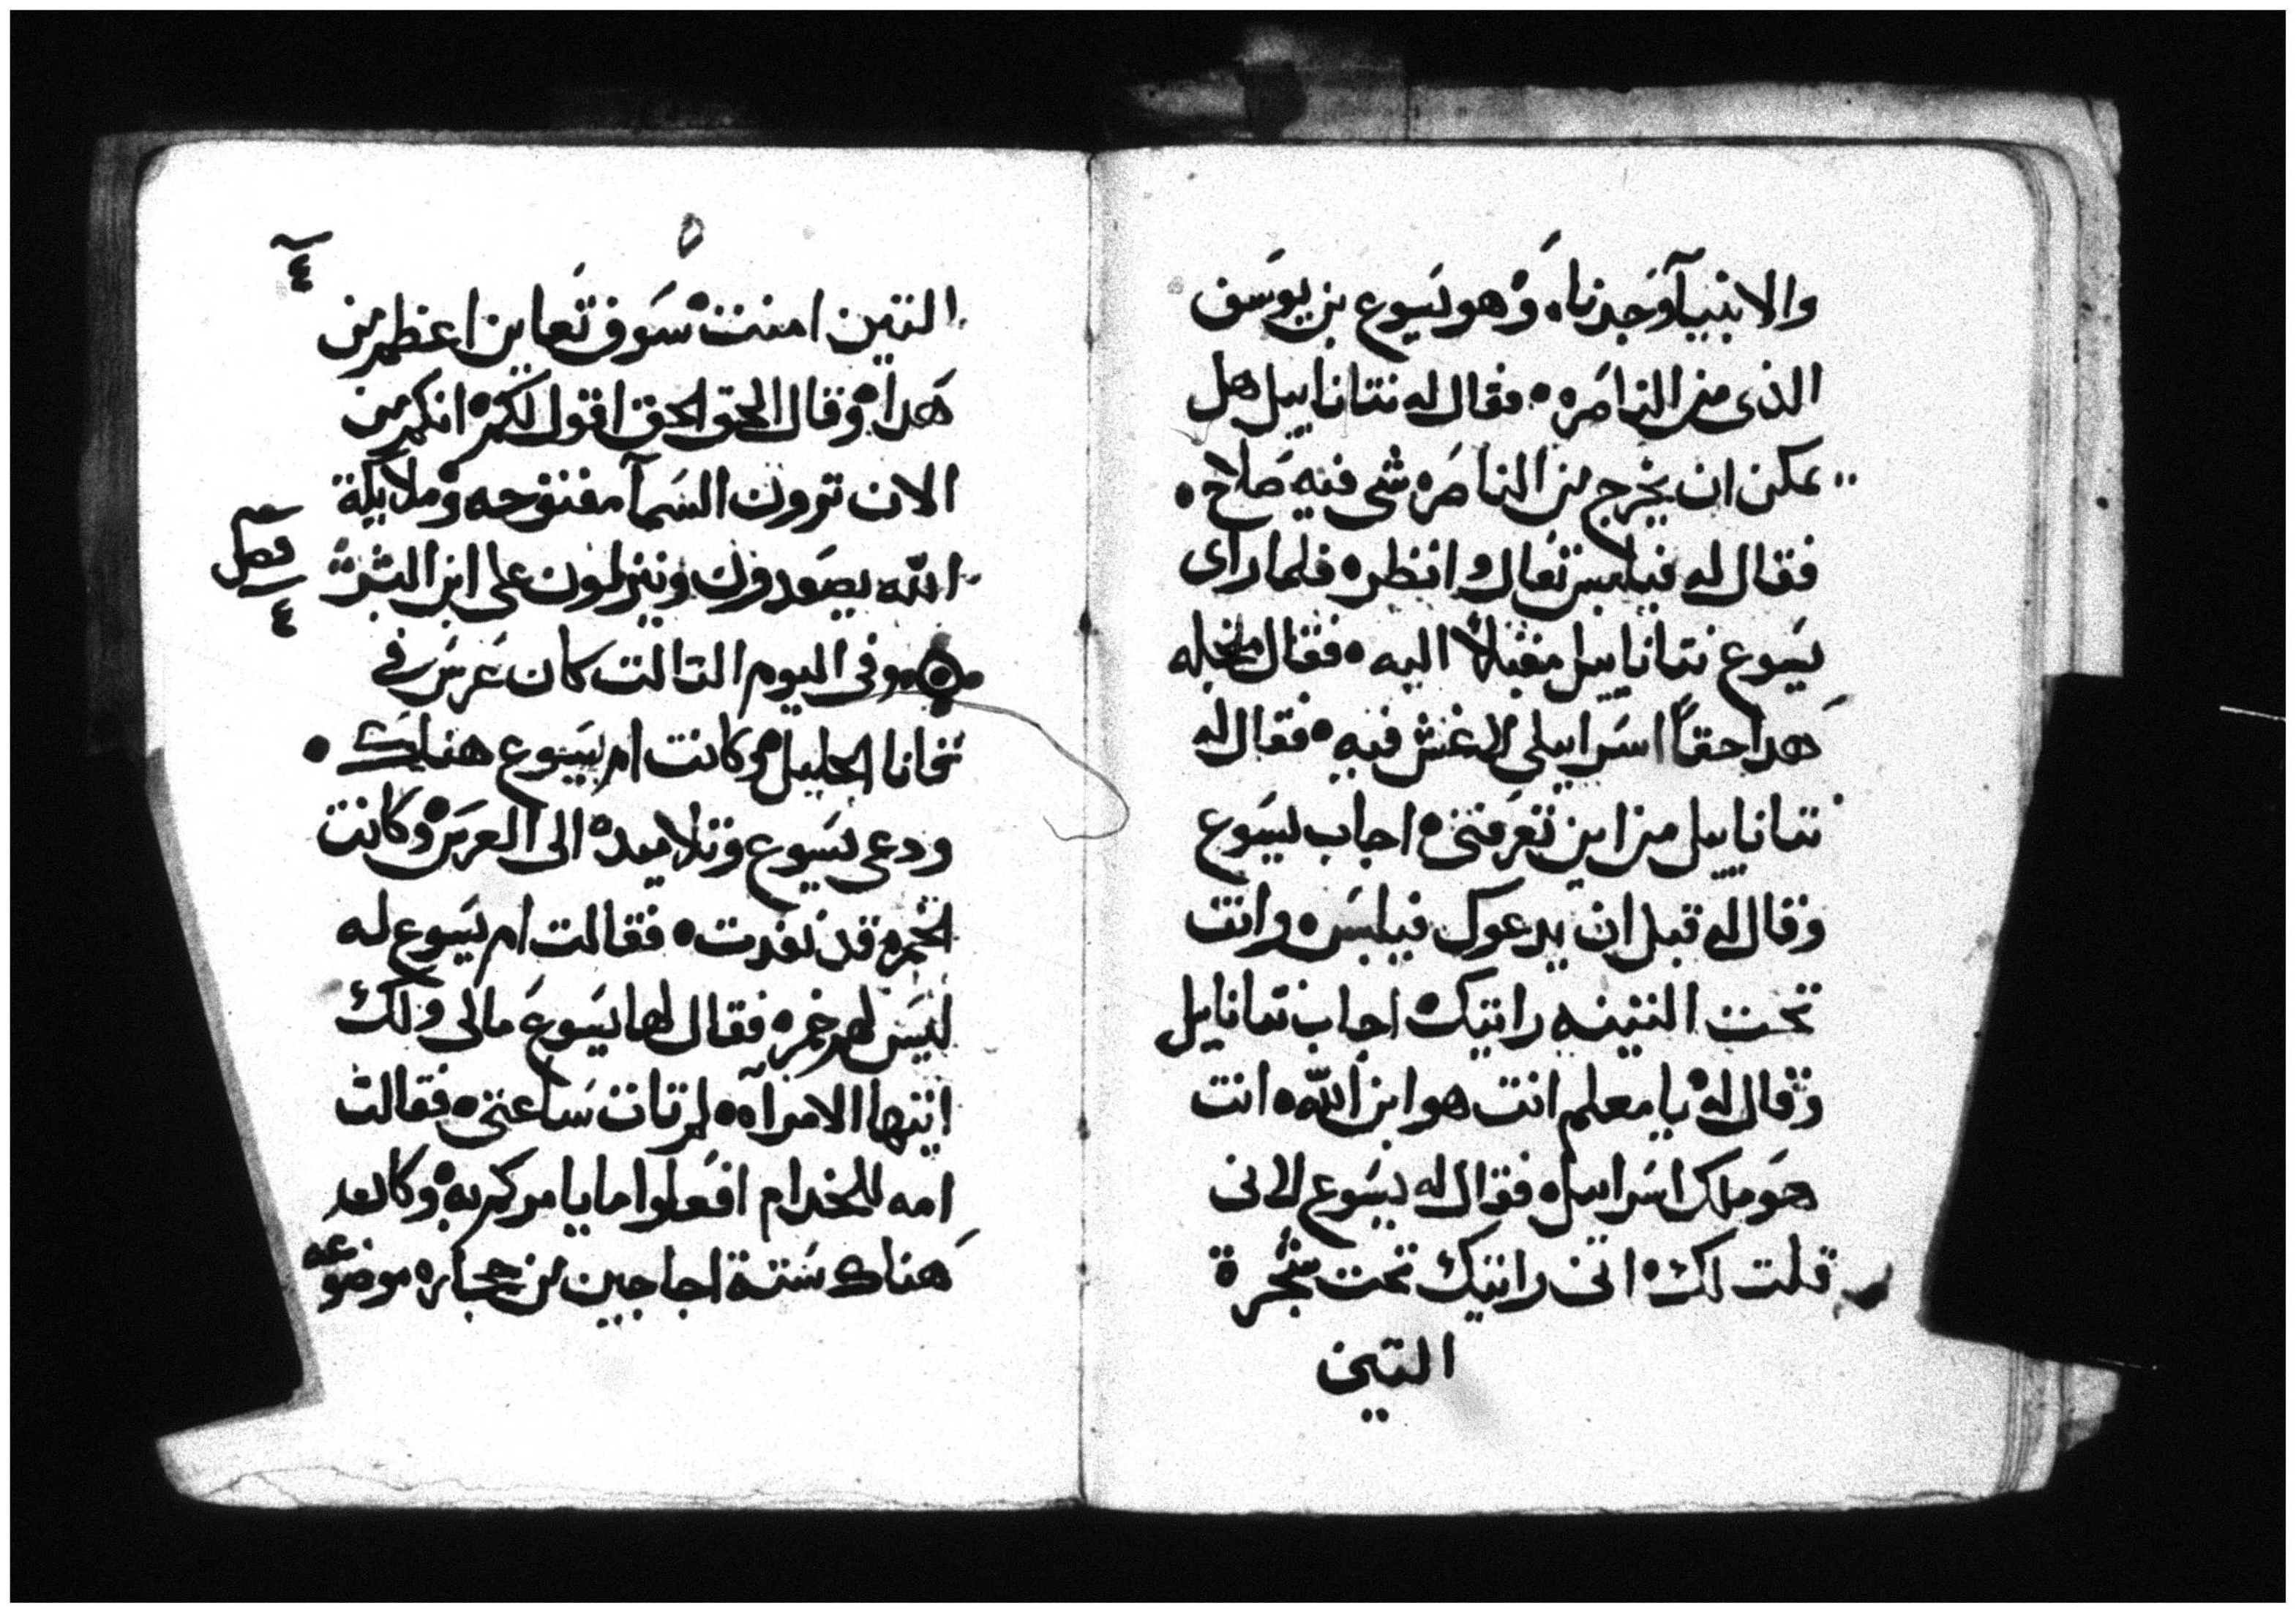 والانبيآ وجدناه وهو يسوع بن يوسف
الذى من الناصره فقال له نتاناييل هل
يمكن ان يخرج من الناصره شى فيه صلاح
فقال له فيلبس تعال وانظره فلما راى
يسوع نتاناييل مقبلاً اليه فقال
هدا حقاً اسراييلى لاغش فيه فقال له
نتاناييل من اين تعرفنى اجاب يسوع
وقال له قبل ان يدعوك فيلبس وانت
تحت التينه رايتك اجاب نتانايل
وقال له يا معلم انت هو ابن الله انت
هو ملك اسراييل فقال له يسوع لانى
قلت لك انى رايتك تحت شجرة
التين
٥
٤
التين امنت سوف تعاين اعظم من
هدا وقال الحق الحق اقول لكم انكم من
الان ترون السمآ مفتوحه وملايكة
الله يصعدون وينزلون على ابن البشر
فصل
٤
وفى اليوم التالت كان عرس فى
قانا الجليل وكانت ام يسوع هناك
ودعى يسوع وتلاميده الى العرس وكانت
الخمره قد نفدت فقالت ام يسوع له
ليس لهم خمره فقال لها يسوع مالى ولك
ايتها الامراه لم تات ساعتى فقالت
امه للخدام افعلوا ما يامركم به وكان
هناك ستة اجاجين من حجاره موضوعه